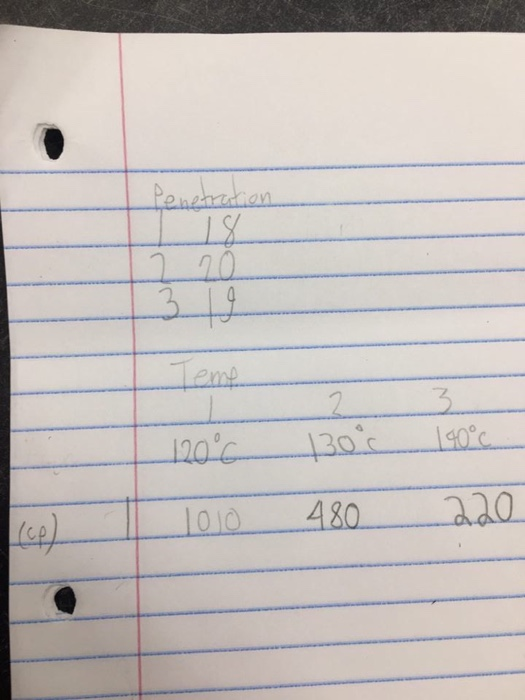 Penetration
1 18
2 20
3 19
Temp
1 2 3
120°C 130°c 140°c
(cp) 1 1010 480 220